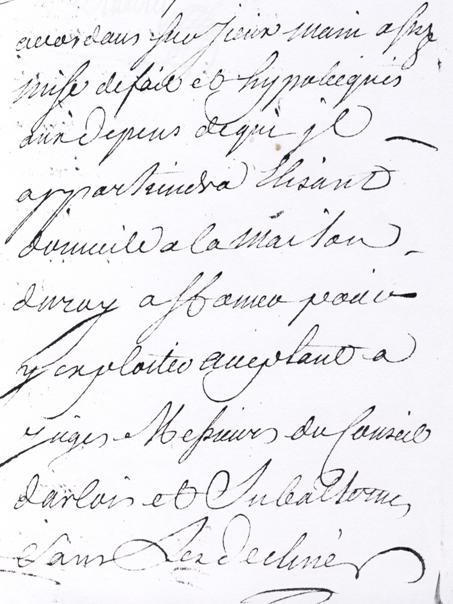 accordans sur jceux main assize
mise de fait et hypotecques
aux depens de qui jl
appartiendra Elisant
domicile a la maison
du roy a st omer pour
y exploiter acceptant a
juges Messieurs du Conseil
dartois et Subalternes
sans Les decliner